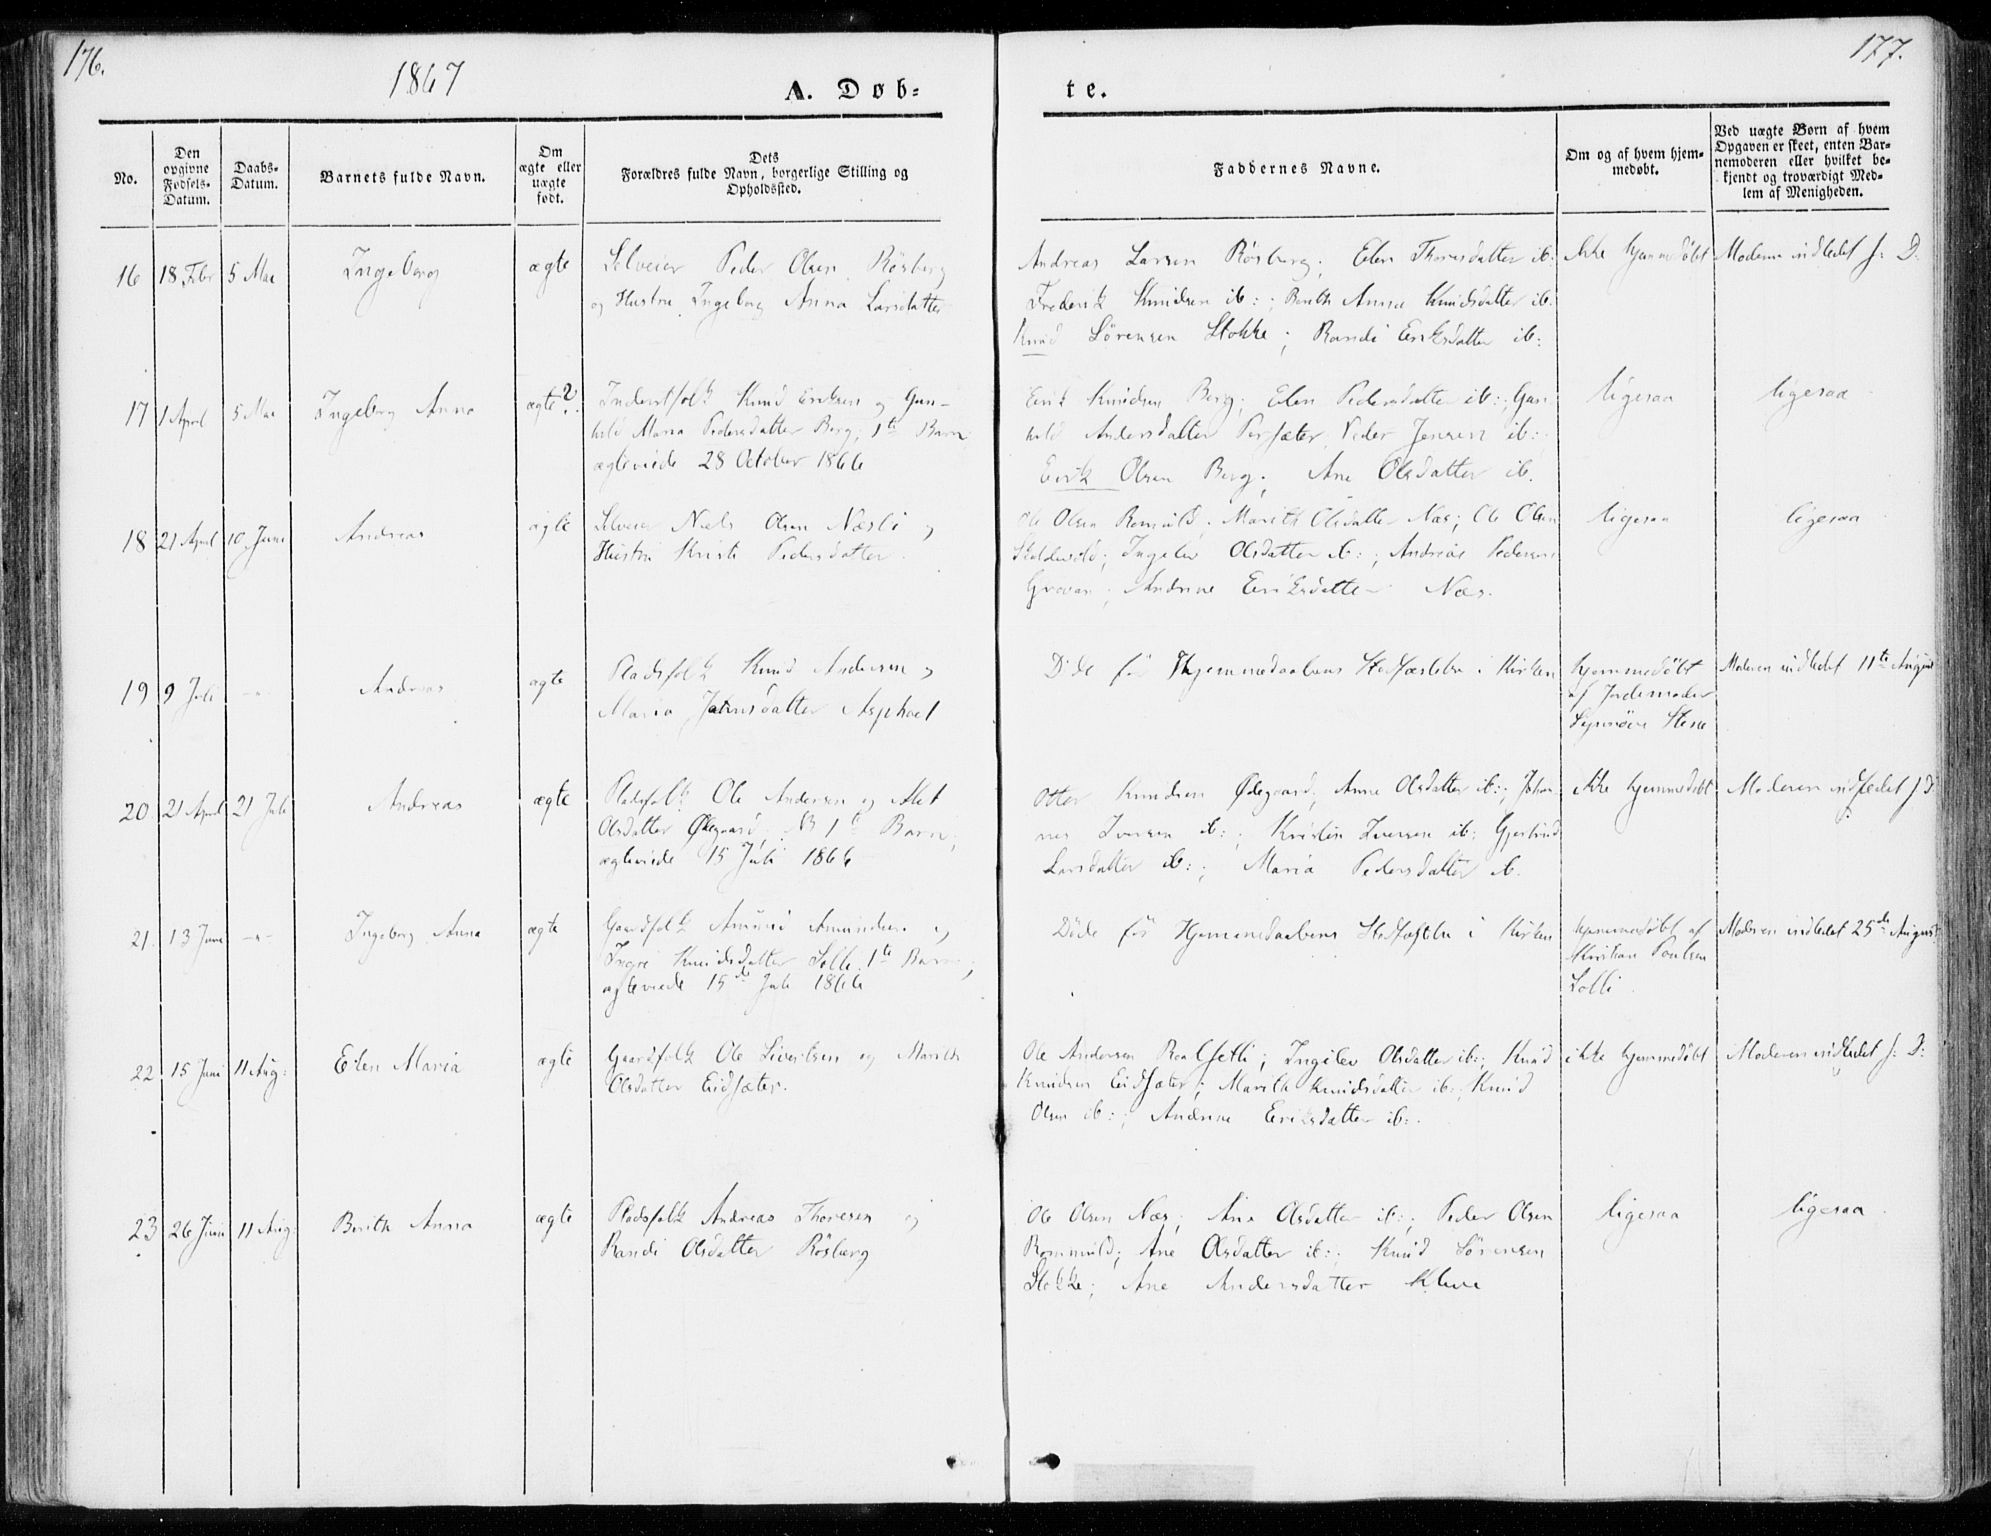 176.
177.
1867
A. Døb-
te.
No.
Den opgivne Fødsels-Datum.
Daabs-Datum.
Barnets fulde Navn.
Om ægte eller uægte født.
Dets
Forældres fulde Navn, borgerlige Stilling og
Opholdssted.
Faddernes Navne.
Om og af hvem hjem-
medøbt.
Ved uægte Børn af hvem
Opgaven er skeet, enten Bar-
nemoderen eller hvilket be-
kjendt og troværdigt Med-
lem af Menigheden.
16 18 Febr 5 Mai Ingeborg ægte Selveier Peder Olsen Rösberg
og Hustru Ingeborg Anna Larsdatter
Andreas Larsen Rösberg; Elen Thoresdatter ib:
Frederik Knudsen ib:; Berith Anna Knudsdatter ib:
Knud Sörensen Stokke; Randi Eriksdatter ib:
ikke hjemmedöbt
Moderen indledet s: D:
17 1 April 5 Mai Ingeborg Anna ægte? Inderstfolk Knud Eriksen og Gun-
hild Maria Pedersdatter Berg; 1te Barn
ægteviede 28 October 1866
Erik Knudsen Berg; Elen Pedersdatter ib:; Gun
hild Andersdatter Peder Jensen ib:
Erik Olsen Berg; Ane Olsdatter ib.
ligesaa
ligesaa
18 21 April 10 Juni Andreas ægte Selveier Niels Olsen Næsli og
Hustru Kristi Pedersdatter
Ole Olsen Romuld; Marith Olsdatter Næs; Ole Olsen
Ingelev Olsdatter ib:; Andreas Pedersen
Grovan; Andrine Eriksdatter Næs.
ligesaa
ligesaa
19 9 Juli -"- Andreas ægte Pladsfolk Knud Andersen og
Maria Johnsdatter Asphoel
Döde før Hjemmedaabens Stadfæstelse i Kirken
hjemmedöbt
af Jordemoder
Synnöve Stene
Moderen indledet 11te August
20 21 April 21 Juli Andreas ægte Pladsfolk Ole Andersen og Alet
Olsdatter Ødegaard; NB 1te Barn;
ægteviede 15 Juli 1866
Otter Knudsen Ødegaard; Anne Olsdatter ib:; Johan
nes Iversen ib:; Kristin Iversen ib: Gjertrud
Larsdatter ib:; Maria Pedersdatter ib.
ikke hjemmedöbt
Moderen indledet s: D
21. 13 Juni -"- Ingeborg Anna ægte Gaardfolk Amund Amundsen og
Ingri Knudsdatter Solli 1te Barn;
ægteviede 15de Juli 1866
Döde för Hjemmedaabens Stadfæstelse i Kirken
hjemmedöbt af
Kristian Poulsen
Solli
Moderen indledet 25de August
22 15 Juni 11 Aug: Elen Maria ægte Gaardfolk Ole Sivertsen og Marith
Olsdatter Eidsæter.
Ole Andersen Ingelev Olsdatter ib:; Knud
Knudsen Eidsæter; Marith Knudsdatter ib:; Knud
Olsen ib:; Andrine Eriksdatter ib:.
ikke hjemmedöbt
Moderen indledet s: D:
23 26 Juni 11 Aug: Berith Anna ægte Pladsfolk Andreas Thoresen og
Randi Olsdatter Rösberg
Ole Olsen Næs; Ane Olsdatter ib:; Peder Olsen
Rommuld; Ane Olsdatter ib:; Knud Sörensen
Stokke; Ane Andersdatter Kleve
ligesaa
ligesaa